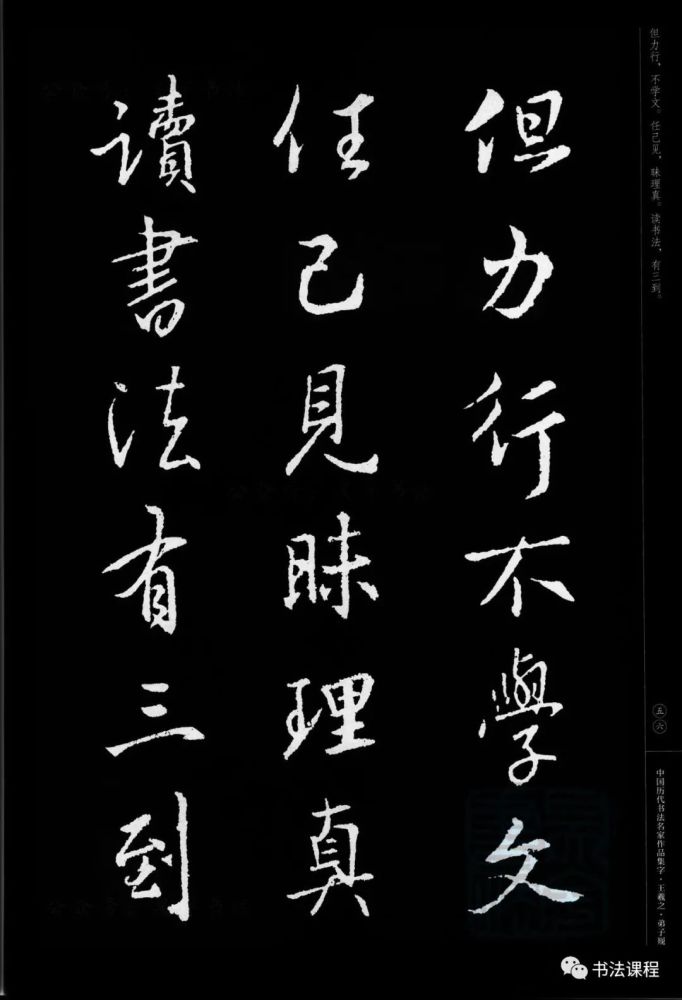 但力行不學文
任己見昧理真
讀書法有三到
但力行，不学文。任己见，昧理真。读书法，有三到。
五六
中国历代书法名家作品集字·王羲之·弟子规
书法课程